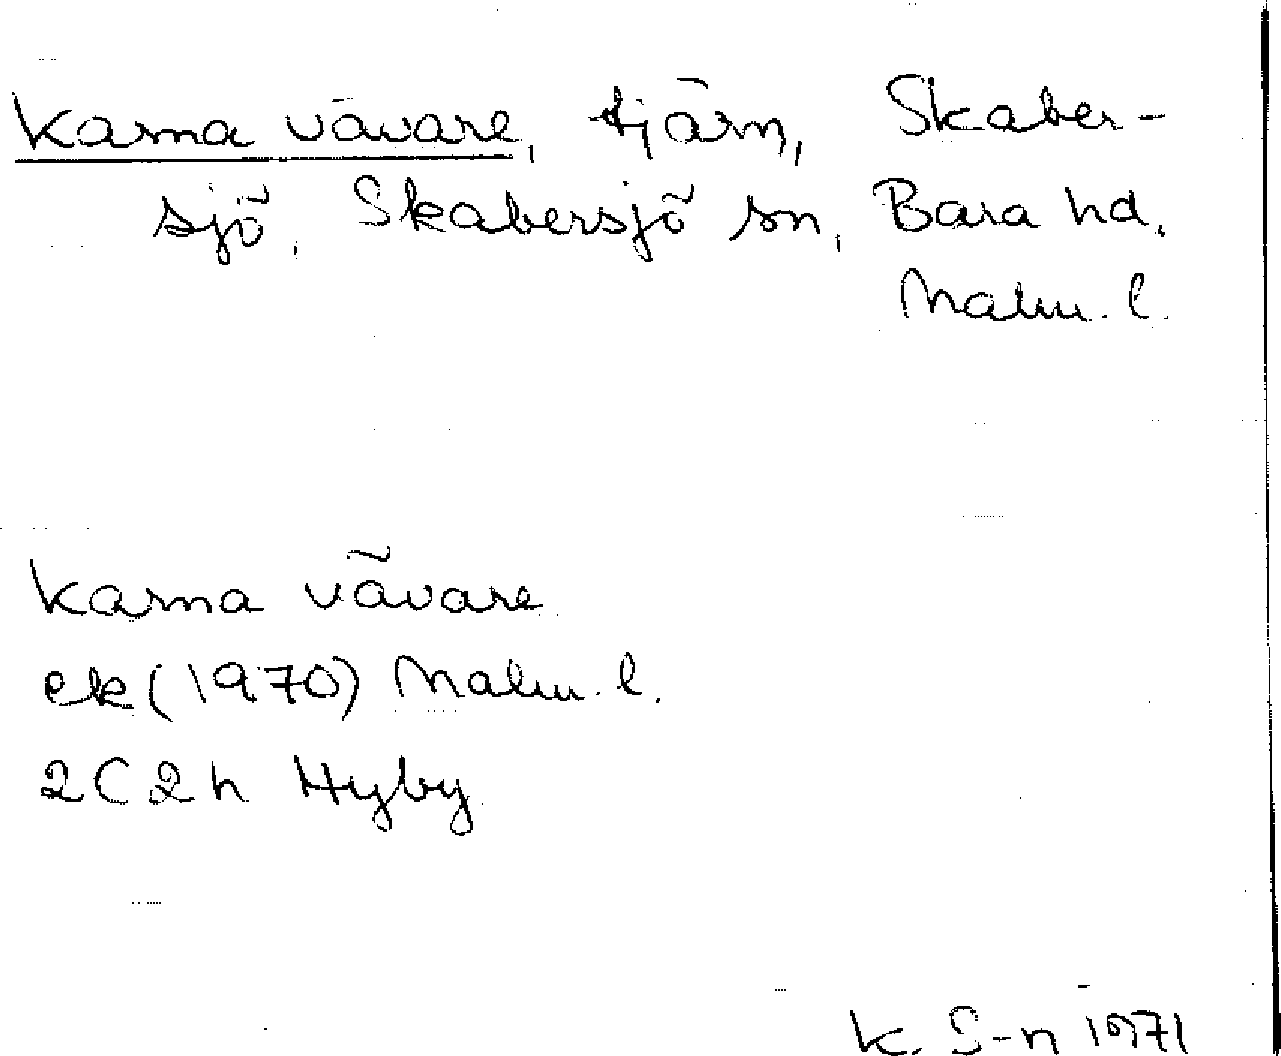 Karna vävare, tjärn, Skaber-
sjö, Skabersjö sn, Bara hd,
Malm. l.
Karna vävare
ek (1970) Malm. l.
2C2h Hyby
K. S-n 1971